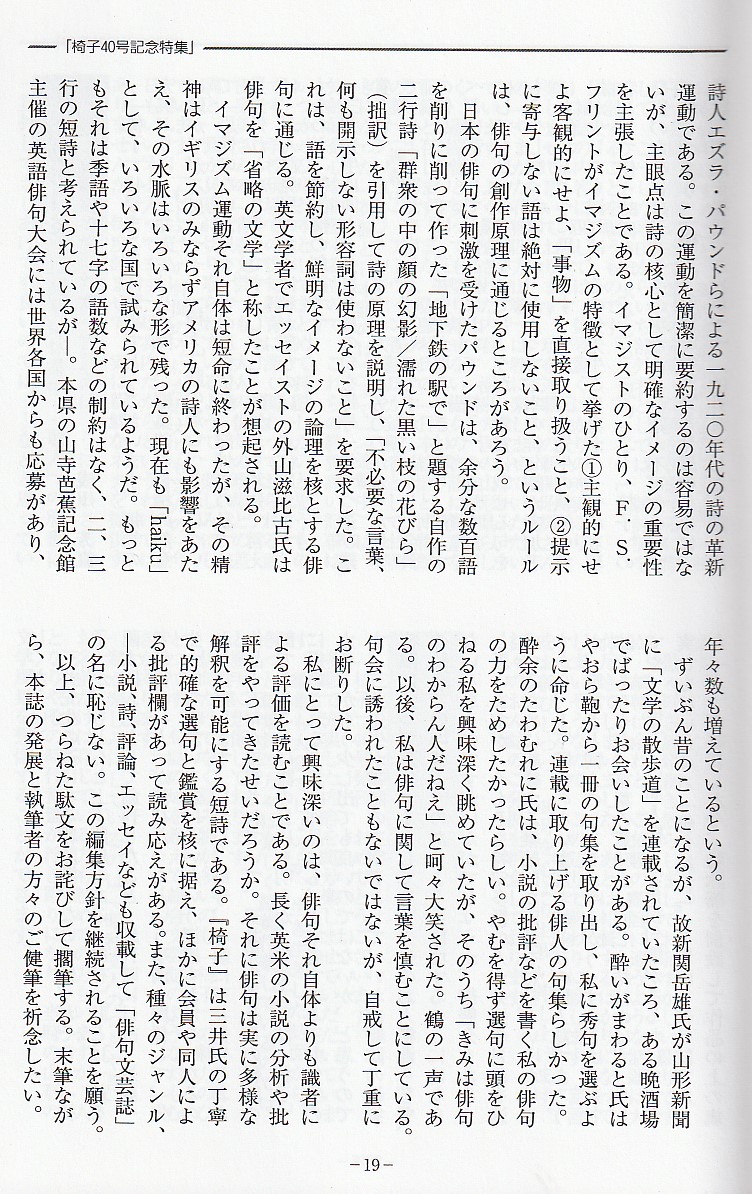 「椅子40号記念特集」
詩人エズラ・パウンドらによる一九二〇年代の詩の革新
運動である。この運動を簡潔に要約するのは容易ではな
いが、主眼点は詩の核心として明確なイメージの重要性
を主張したことである。イマジストのひとり、F・S・
フリントがイマジズムの特徴として挙げた①主観的にせ
よ客観的にせよ、「事物」を直接取り扱うこと、②提示
に寄与しない語は絶対に使用しないこと、というルール
は、俳句の創作原理に通じるところがあろう。
日本の俳句に刺激を受けたパウンドは、余分な数百語
を削りに削って作った「地下鉄の駅で」と題する自作の
二行詩「群衆の中の顔の幻影／濡れた黒い枝の花びら」
（拙訳）を引用して詩の原理を説明し、「不必要な言葉、
何も開示しない形容詞は使わないこと」を要求した。こ
れは、語を節約し、鮮明なイメージの論理を核とする俳
句に通じる。英文学者でエッセイストの外山滋比古氏は
俳句を「省略の文学」と称したことが想起される。
イマジズム運動それ自体は短命に終わったが、その精
神はイギリスのみならずアメリカの詩人にも影響をあた
え、その水脈はいろいろな形で残った。現在も「haiku」
として、いろいろな国で試みられているようだ。もっと
もそれは季語や十七字の語数などの制約はなく、二、三
行の短詩と考えられているが―。本県の山寺芭蕉記念館
主催の英語俳句大会には世界各国からも応募があり、
年々数も増えているという。
ずいぶん昔のことになるが、故新関岳雄氏が山形新聞
に「文学の散歩道」を連載されていたころ、ある晩酒場
でばったりお会いしたことがある。酔いがまわると氏は
やおら鞄から一冊の句集を取り出し、私に秀句を選ぶよ
うに命じた。連載に取り上げる俳人の句集らしかった。
酔余のたわむれに氏は、小説の批評などを書く私の俳句
の力をためしたかったらしい。やむを得ず選句に頭をひ
ねる私を興味深く眺めていたが、そのうち「きみは俳句
のわからん人だねえ」と呵々大笑された。鶴の一声であ
る。以後、私は俳句に関して言葉を慎むことにしている。
句会に誘われたこともないではないが、自戒して丁重に
お断りした。
私にとって興味深いのは、俳句それ自体よりも識者に
よる評価を読むことである。長く英米の小説の分析や批
評をやってきたせいだろうか。それに俳句は実に多様な
解釈を可能にする短詩である。『椅子』は三井氏の丁寧
で的確な選句と鑑賞を核に据え、ほかに会員や同人によ
る批評欄があって読み応えがある。また、種々のジャンル、
―小説、詩、評論、エッセイなども収載して「俳句文芸誌」
の名に恥じない。この編集方針を継続されることを願う。
以上、つらねた駄文をお詫びして擱筆する。末筆なが
ら、本誌の発展と執筆者の方々のご健筆を祈念したい。
－19－